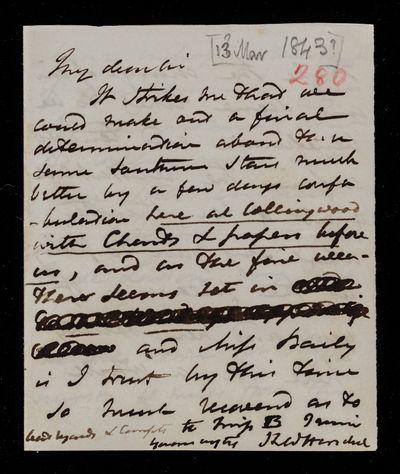 [13 Mar 1843?]
280
My dear Sir
It strikes me that we
could make out a final
determination about these
same Southern Stars much
better by a few days confa
-bulation here at Collingwood
with Charts & papers before
us, and as the fine wea-
-ther seems set in
and Miss Baily
is I trust by this time
so much recovered as to
to Miss B I remain
yours ever JFWHerschel